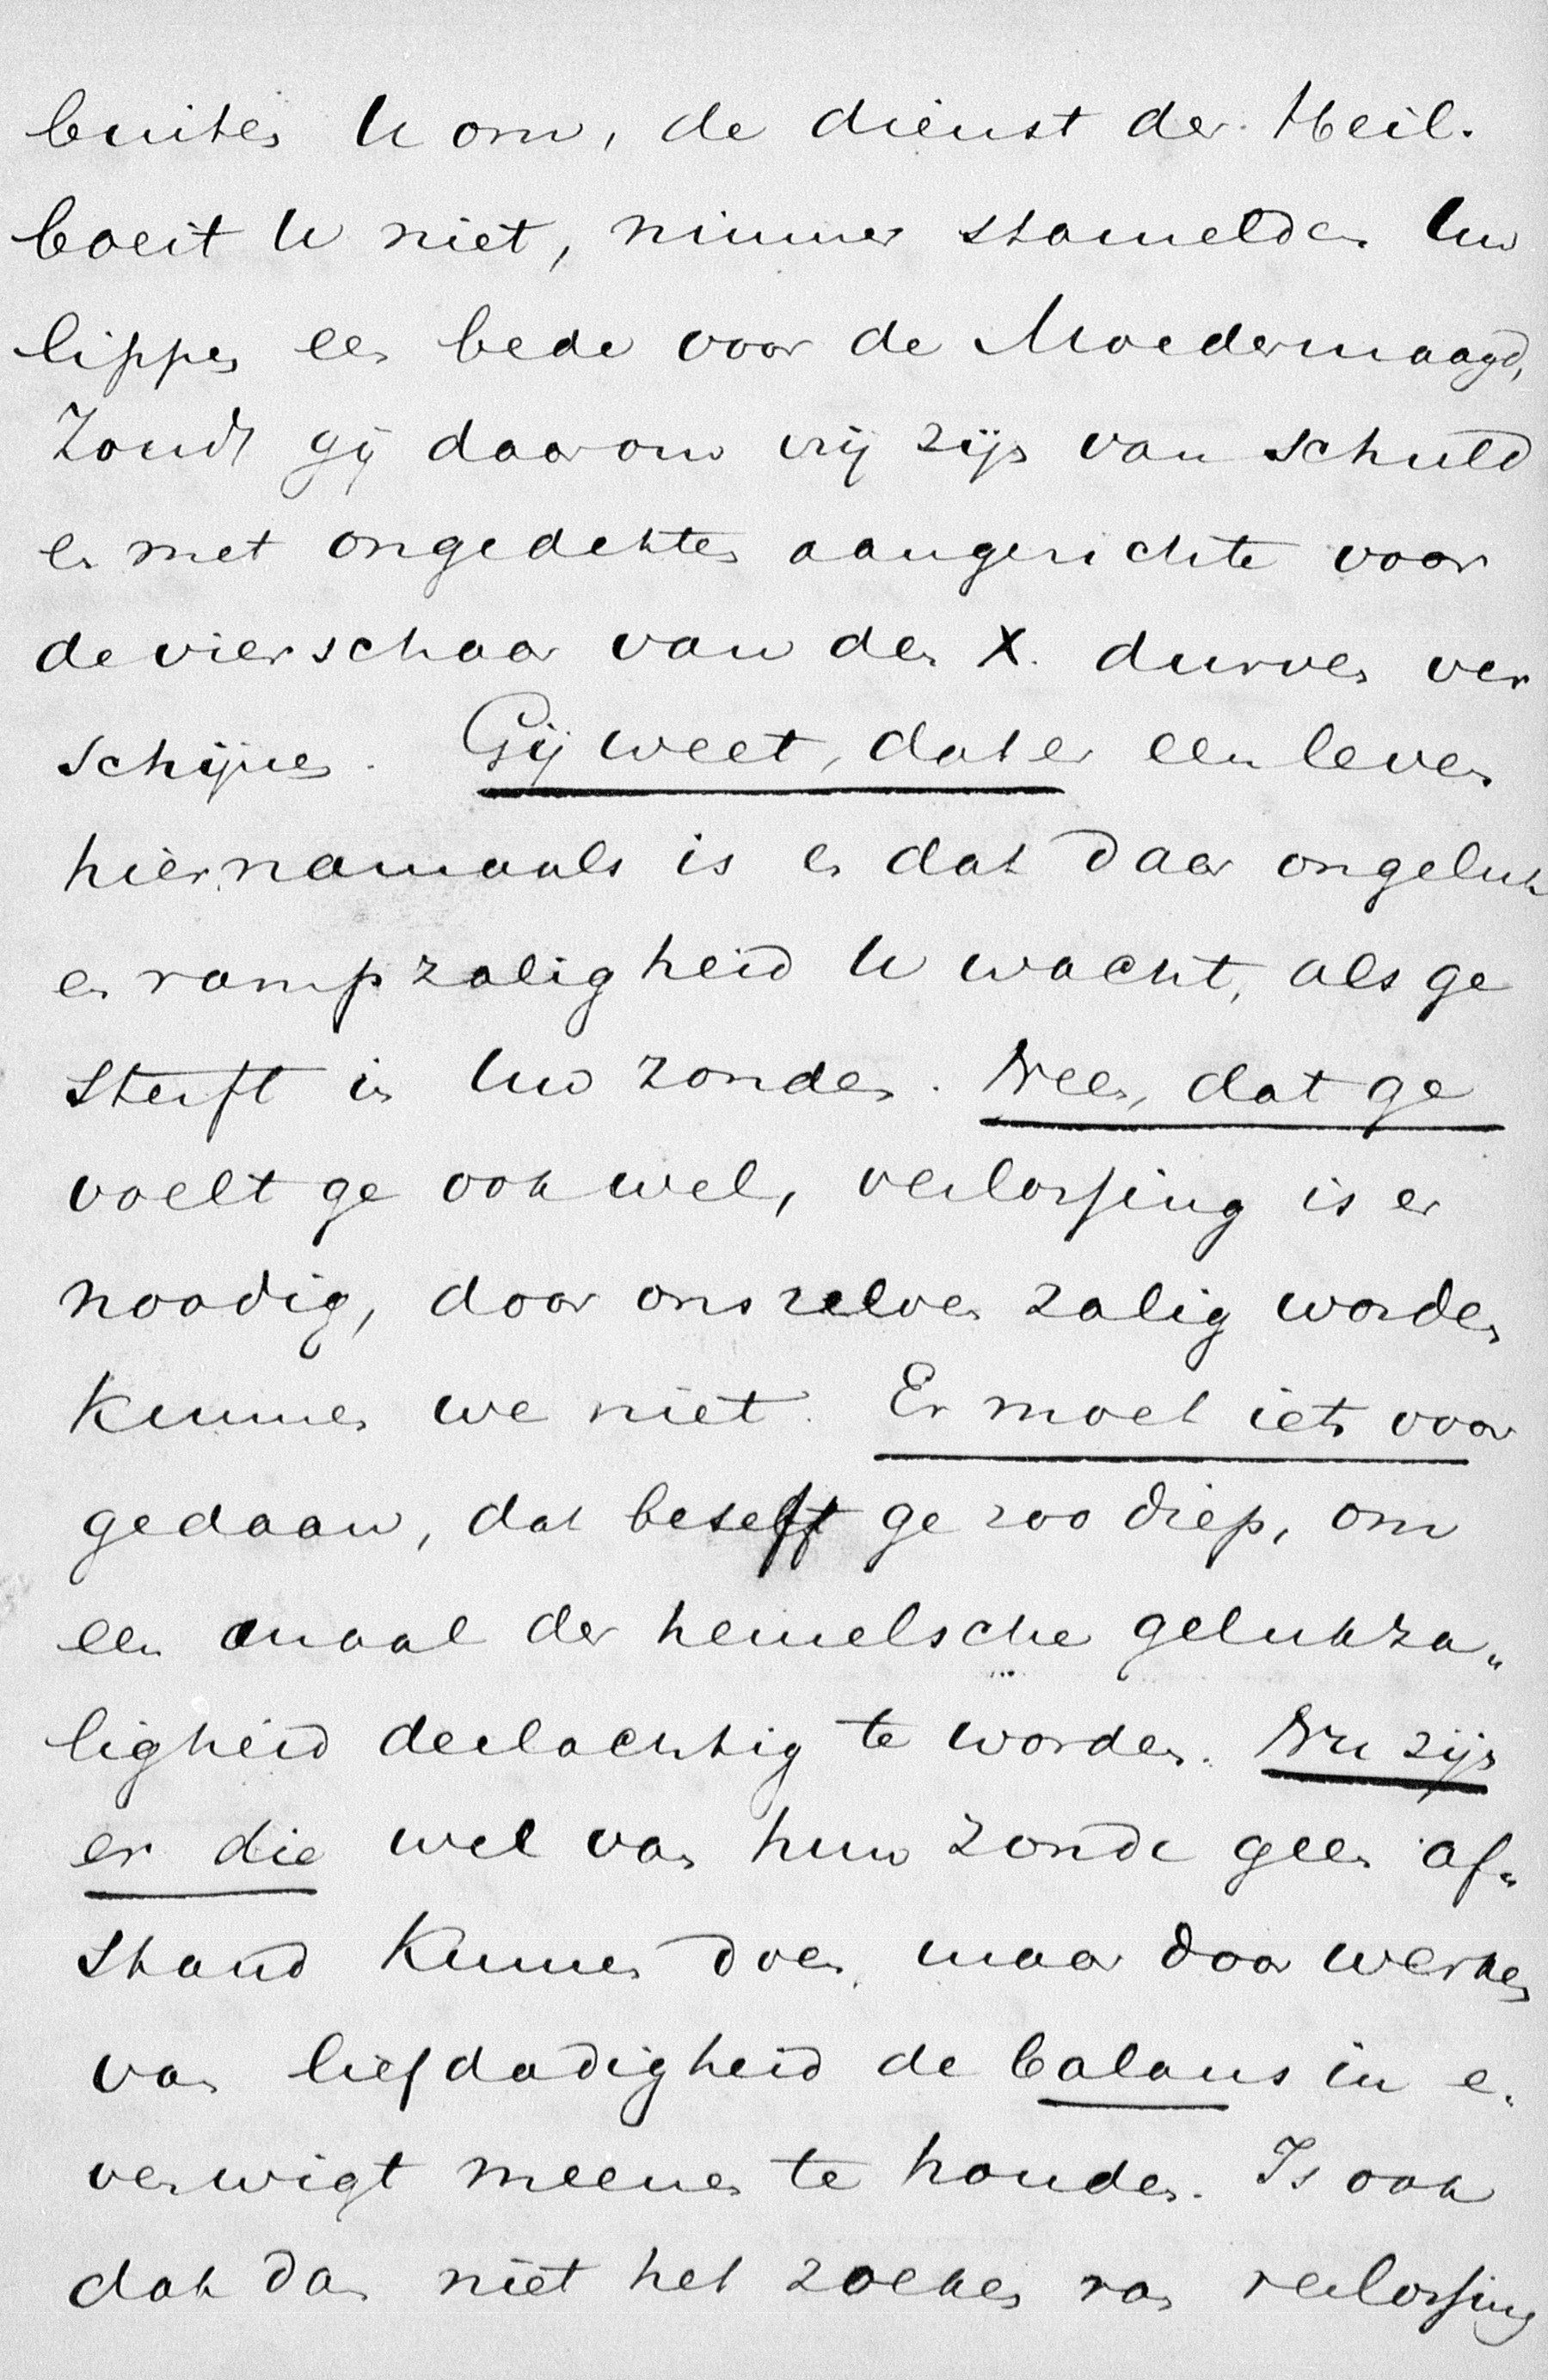 buiten U om, de dienst der Heil.
boeit U niet, nimmer stamelden Uw
lippen een bede voor de Moedermaagd,
Zoudt gij daarom vrij zijn van schuld
en met ongedekten aangerichte voor
de vierschaar van den X. durven ver
schijnen. Gij weet, dat er een leven
hiernamaals is en dat daar ongeluk
en rampzaligheid U wacht, als ge
sterft in Uw zonden. Neen, dat ge
voelt ge ook wel, verlossing is er
noodig, door ons zelven zalig worden
kunnen we niet. Er moet iets voor
gedaan, dat beseft ge zoo diep, om
een maal der hemelsche gelukza„
ligheid deelachtig te worden. Nu zijn
er die wel van hun zonde geen af„
stand kunnen doen, maar door werken
van liefdadigheid de balans in e.
venwigt meenen te houden. Is ook
dat dan niet het zoeken van verlossing